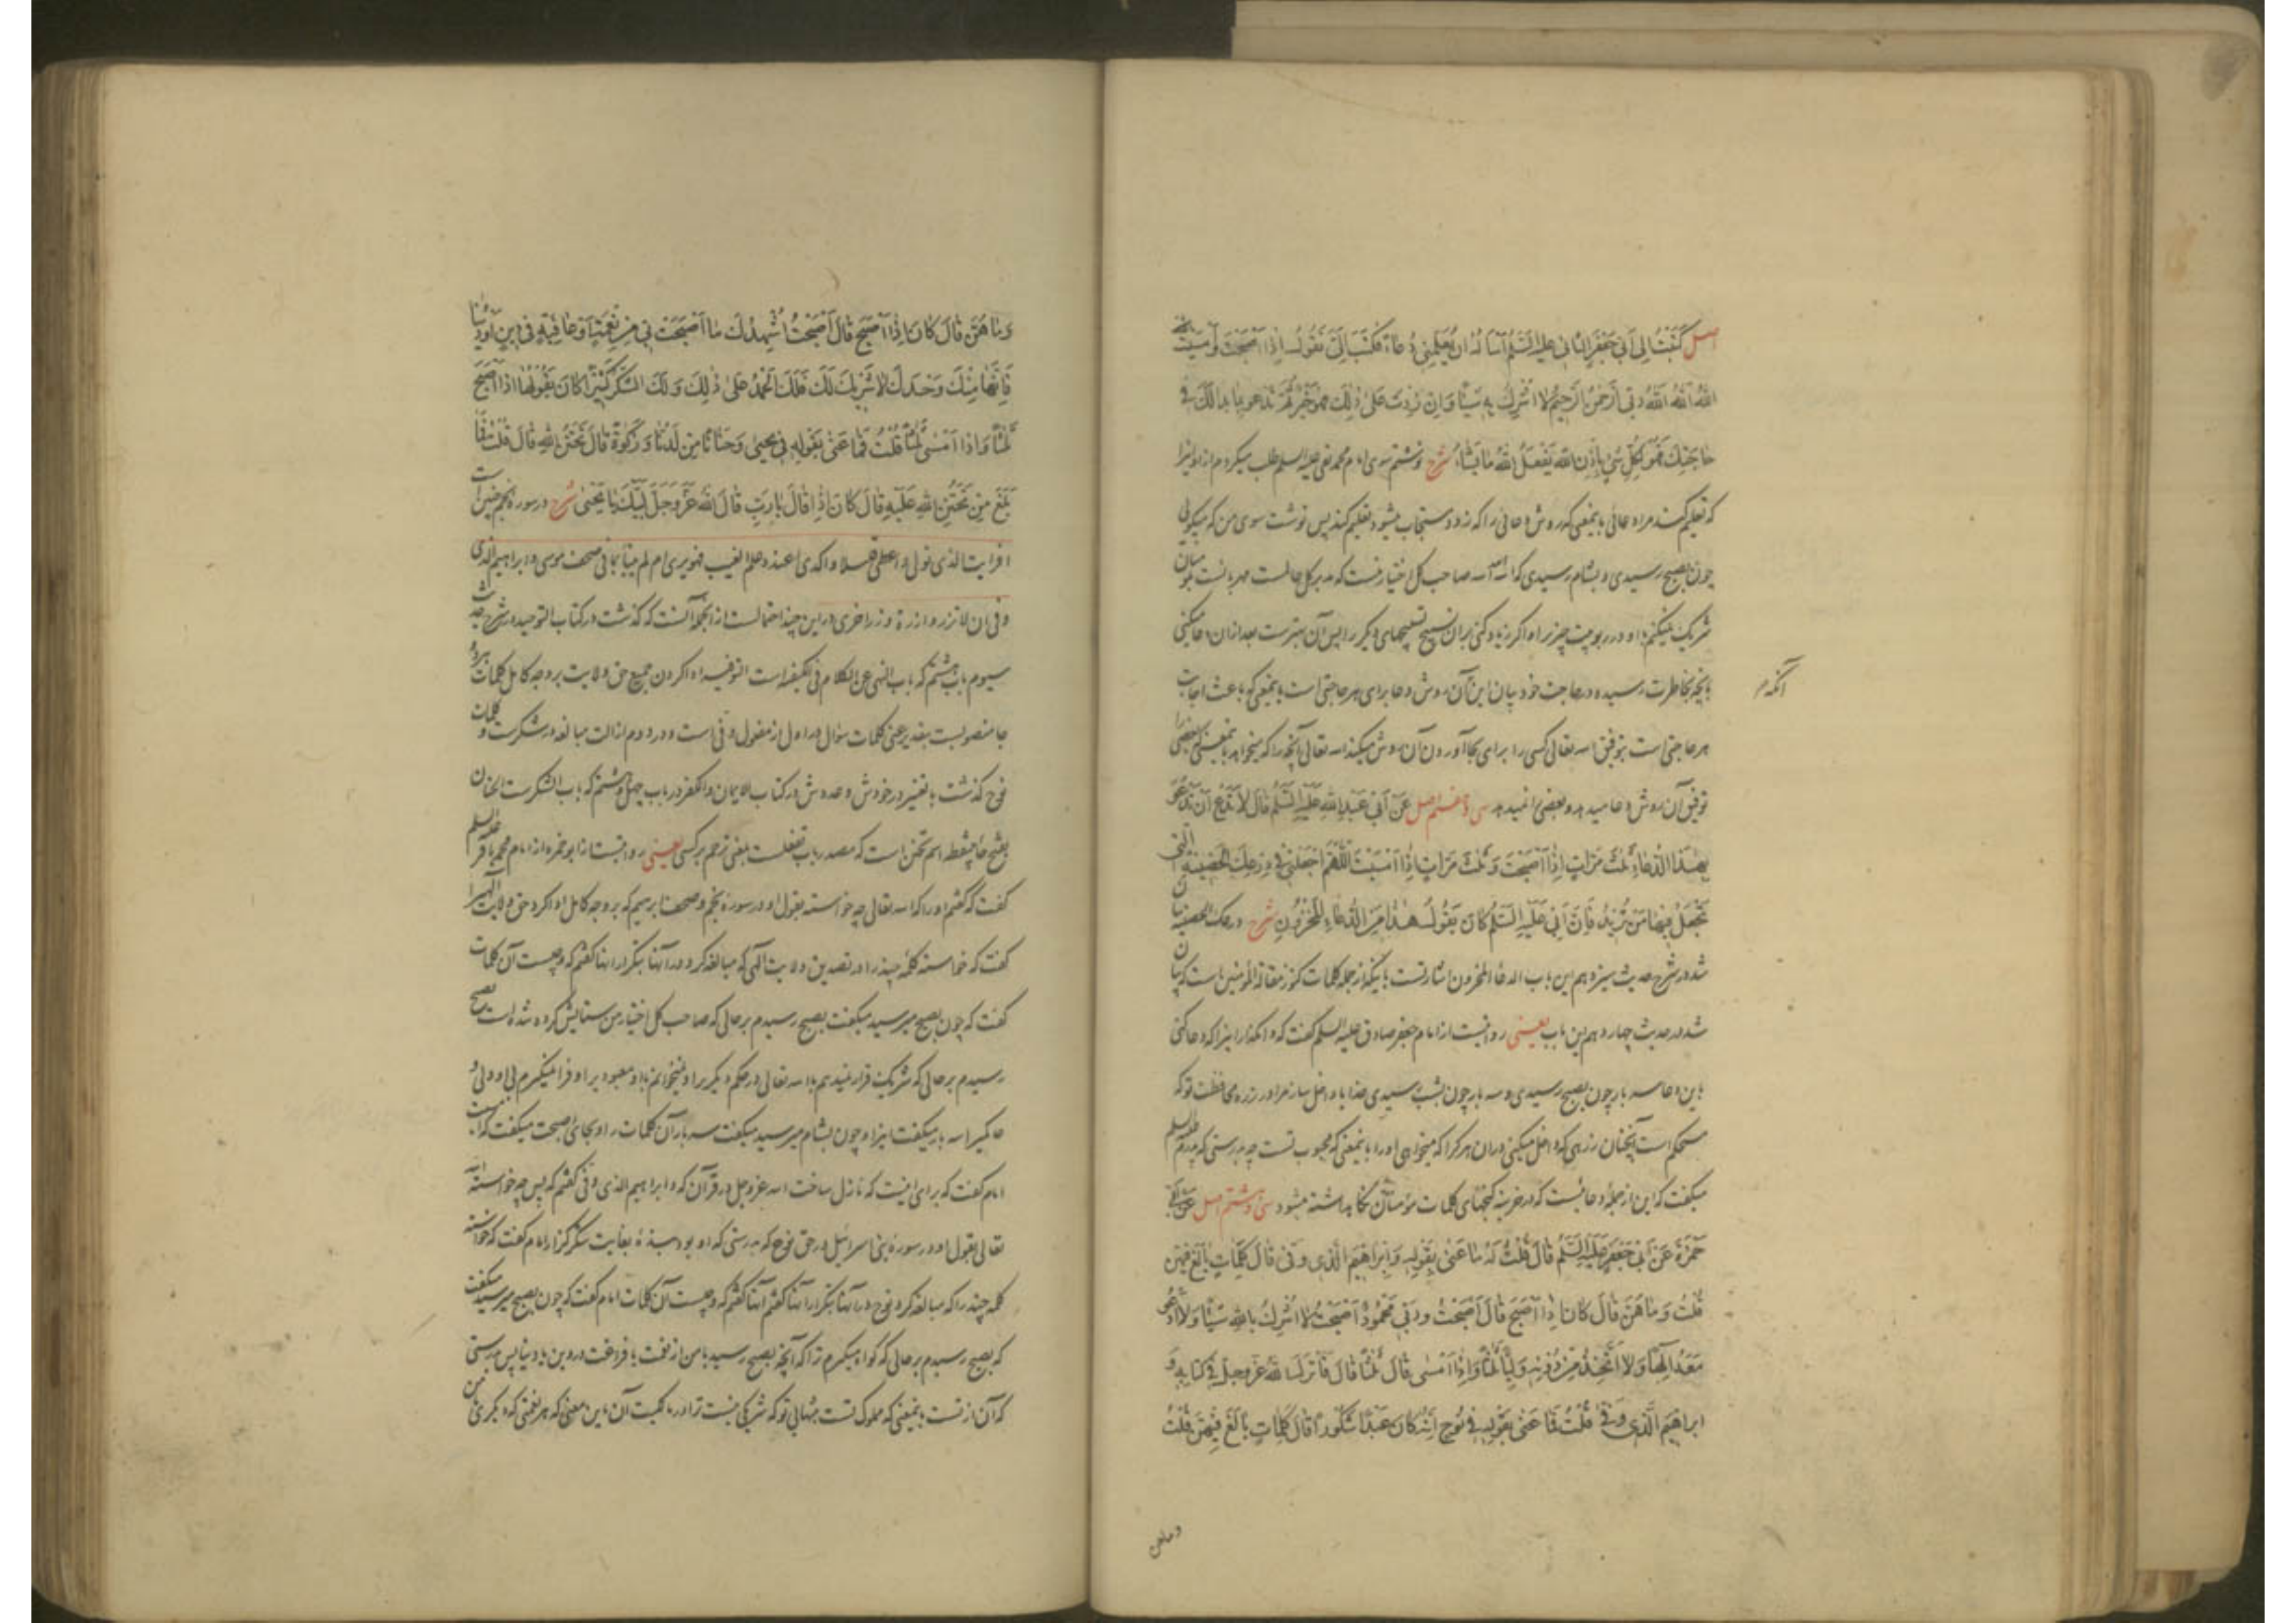 اصل كَتَبْتُ اِلى اَبي جَعْفَرٍ الثّاني عليه السَّلم اَسْاَلُهُ ان يُعَلِّمَني دُعاءً فَكَتَبَ اِلَيَّ تَقُولُ اِذا اَصْبَحْتَ وَاَمْسَيْتَ
اللهُ اَللهُ اَللهُ رَبّي اَلرَّحْمنُ الرَّحيمُ لا اُشْرِكُ بِهِ شَيْئًا وَاِنْ زِدْتَ عَلى ذلِكَ فَهُوَ خَيْرٌ ثُمَّ تَدْعو بِما بَدا لَكَ في
حاجَتِكَ فَهُوَ لِكُلِّ شَيْءٍ بِاِذْنِ اللهِ يَفْعَلُ اللهُ ما يَشاءُ شرح نوشتم سوی امام محمد تقی علیه السلم طلب میکردم از او اینرا
که تعلیم کند مرا دعائی بمعنی که روش دعائی را که زود مستجاب میشود تعلیم کند پس نوشت سوی من که میگویی
چون بصبح رسیدی و بشام رسیدی که الله الله الله صاحب کل اختیار منست که مدبر کل عالمست مهربانست بمؤمنان
شریک نمیکنم با او در ربوبیت چیزی را و اگر زیاد کنی بر آن تسبیح تسبیحهای دیگر را پس آن بهترست بعد ازان دعا میکنی
بانچه بخاطرت رسیده در حاجت خود بیان این آن روش دعا برای هر حاجتی است بمعنی که باعث اجابت
آنکه م
هر حاجتی است بتوفیق الله تعالی کسی را برای بجا آوردن آن روش میکند الله تعالی آنچه را که میخواهد بمعنی که بعضی را
توفیق آن روش دعا میدهد و بعضی را نمیدهد سی و هفتم اصل عَنْ اَبي عَبْدِ اللهِ عَلَيْهِ السَّلم قالَ لا تَدَعْ اَنْ تَدْعُوَ
بِهذَا الدُّعاءِ ثَلثَ مَرّاتٍ اِذا اَصْبَحْتَ وَثَلثَ مَرّاتٍ اِذا اَمْسَيْتَ اَللّهُمَّ اجْعَلْني في دِرْعِكَ الْحَصينَةِ الَّتي
تَجْعَلُ فيها مَنْ تُريدُ فَاِنَّ اَبي عَلَيْهِ السَّلم كانَ يَقُولُ هذا مِنَ الدُّعاءِ الْمَخْزُونِ شرح درعک الحصینة بیان
شد در شرح حدیث سیزدهم این باب الدعاء المخزون اشارتست باینکه از جمله کلمات کنوز مقالة المؤمنین است که بیان
شد در حدیث چهاردهم این باب یعنی روایتست از امام جعفر صادق علیه السلم گفت که وامگذار اینرا که دعا کنی
باین دعا سه بار چون بصبح رسیدی و سه بار چون بشب رسیدی خدایا داخل ساز مرا در زره محافظت تو که
مستحکم است آنچنان زرهی که داخل میکنی در آن هر که را که میخواهی او را بمعنی که محبوب تست چه بدرستی که پدرم علیه السلم
میگفت که این از جمله دعائیست که در خزینه گنجهای کلمات مؤمنان نگاهداشته میشود سی و هشتم اصل عَنْ اَبي
حَمْزَةَ عَنْ اَبي جَعْفَرٍ عَلَيْهِ السَّلم قالَ قُلْتُ لَهُ ما عَنى بِقَوْلِهِ وَاِبْراهيمَ الَّذي وَفّى قالَ كَلِماتٍ بالَغَ فيهِنَّ
قُلْتُ وَما هُنَّ قالَ كانَ اِذا اَصْبَحَ قالَ اَصْبَحْتُ وَرَبّي مَحْمُودٌ اَصْبَحْتُ لا اُشْرِكُ بِاللهِ شَيْئًا وَلا اَدْعُو
مَعَهُ اِلهًا وَلا اَتَّخِذُ مِنْ دُونِهِ وَلِيًّا ثَلثًا وَاِذا اَمْسى قالَ ثَلثًا قالَ فَاَنْزَلَ اللهُ عَزَّ وَجَلَّ في كِتابِهِ وَ
ابراهيمَ الَّذي وَفّى قُلْتُ فَما عَنى بِقَوْلِهِ في نُوحٍ اِنَّهُ كانَ عَبْدًا شَكُورًا قالَ كَلِماتٍ بالَغَ فيهِنَّ قُلْتُ
وما هن
وَما هُنَّ قالَ كانَ اِذا اَصْبَحَ قالَ اَصْبَحْتُ اُشْهِدُكَ ما اَصْبَحَتْ بي مِنْ نِعْمَةٍ اَوْ عافِيَةٍ في دينٍ اَوْ دُنْيا
فَاِنَّها مِنْكَ وَحْدَكَ لا شَريكَ لَكَ فَلَكَ الْحَمْدُ عَلى ذلِكَ وَلَكَ الشُّكْرُ كَثيرًا كانَ يَقُولُها اِذا اَصْبَحَ
ثَلثًا وَاِذا اَمْسى ثَلثًا قُلْتُ فَما عَنى بِقَوْلِهِ في يَحْيى وَحَنانًا مِنْ لَدُنّا وَزَكوةً قالَ تَحَنُّنَ اللهِ قالَ قُلْتُ فَما
بَلَغَ مِنْ تَحَنُّنِ اللهِ عَلَيْهِ قالَ كانَ اِذا قالَ يا رَبِّ قالَ اللهُ عَزَّ وَجَلَّ لَبَّيْكَ يا يَحْيى شرح در سوره نجم چنین است
افرایت الذی تولی و اعطی قلیلا و اکدی اعنده علم الغیب فهو یری ام لم ینبأ بما فی صحف موسی و ابراهیم الذی
وفی ان لا تزر وازرة وزر اخری در این چند احتمالست از آنجمله آنست که گذشت در کتاب التوحید در شرح حدیث
سیوم باب هشتم که باب النهی عن الکلام فی الکیفیه است التوفیه ادا کردن جمیع حق ولایت بر وجه کامل کلمات هر دو
جا منصوبست بتقدیر عنی کلمات سؤال در اول از مفعول وفی است و در دوم از الت مبالغه در شکرست و کلمات
نوح گذشت بتغییر در خودش و عددش در کتاب الایمان و الکفر در باب چهل و هشتم که باب الشکرست الحنان
بفتح حاء بینقطه اسم تحنن است که مصدر باب تفعلست بمعنی ترحم بر کسی یعنی روایتست از ابوحمزه از امام محمد باقر علیه السلم
گفت که گفتم او را که الله تعالی چه خواسته بقول او در سوره نجم و صحف ابرهیم که بر وجه کامل ادا کرد حق ولایت الهی را
گفت که خواسته کلمه چند را در تصدیق ولایت الهی که مبالغه کرد در آنها بتکرار آنها گفتم که و چیست آن کلمات
گفت که چون بصبح میرسید میگفت بصبح رسیدم بر حالی که صاحب کل اختیار من ستایش کرده شده است بصبح
رسیدم بر حالی که شریک قرار نمیدهم با الله تعالی در حکم دیگری را و نمیخوانم با او معبود دیگر را و فرا نمیگیرم بی او ولی و
حاکمی را سه بار میگفت اینرا و چون بشام میرسید میگفت سه بار آن کلمات را و بجای اصبحت میگفت که امسیت
امام گفت که برای اینست که نازل ساخت الله عز و جل در قرآن که و ابراهیم الذی وفی گفتم که پس چه خواسته الله
تعالی بقول او در سوره بنی اسرائیل در حق نوح که بدرستی که او بود بندهٔ بغایت شکر گزار امام گفت که خواسته
کلمه چند را که مبالغه کرد نوح در آنها بتکرار آنها گفتم که و چیست آن کلمات امام گفت که چون بصبح میرسید میگفت
که بصبح رسیدم بر حالی که گواه میگیرم ترا که آنچه بصبح رسید با من از نعمت یا فراغت در دین یا دنیا پس بدرستی
که آن از تست بمعنی که مملوک تست بتنهایی تو که شریکی نیست ترا در مالکیت آن باین معنی که هر نعمتی که دیگری بمن